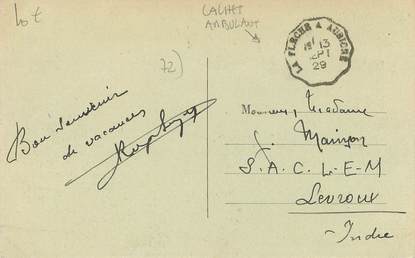 Lot
CACHET
AMBULANT
72)
LA FLECHE A AUBIGNE
13
SEPT
29
Bon Souvenir
de vacances
Monsieur, Madame
J. Mainson
S.A.C.L.E.M
Levroux
Indre